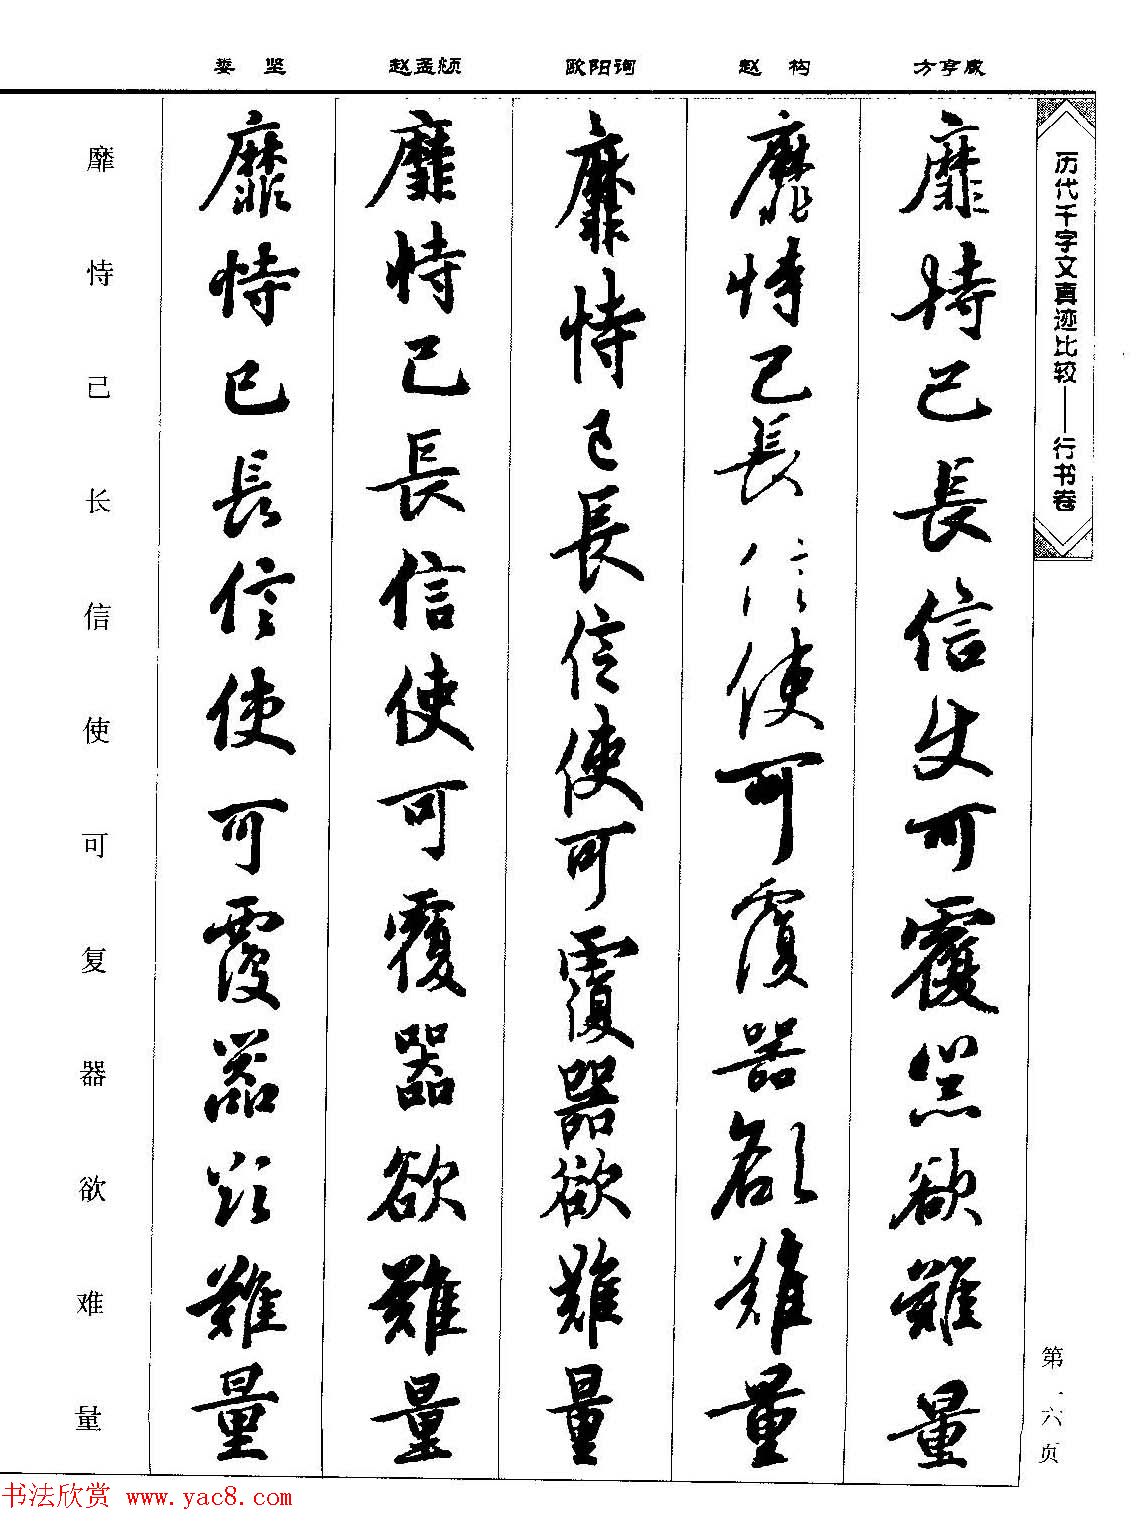 娄 坚 赵孟頫 欧阳询 赵 构 方亨咸
历代千字文真迹比较——行书卷
靡恃己長信使可覆器欲難量
靡恃己長信使可覆器欲難量
靡恃己長信使可覆器欲難量
靡恃己長信使可覆器欲難量
靡恃己長信使可覆器欲難量
靡恃己长信使可复器欲难量
第一六页
书法欣赏 www.yac8.com